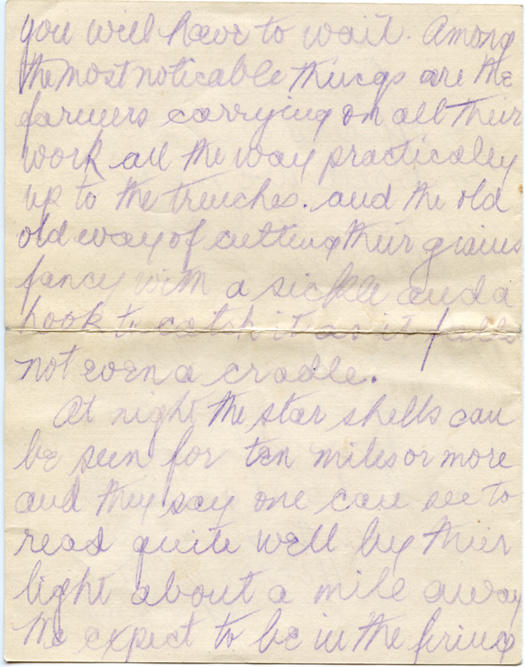 you will have to wait. Among
the most noticable things are the
farmers carrying on all their
work all the way practicaley
up to the trenches. and the old
old way of cutting their grains
fancy with a sickle and a
hook to catch it as it falls
not even a cradle.
At night the star shells can
be seen for ten miles or more
and they say one can see to
read quite well by thier
light about a mile away
We expect to be in the firing